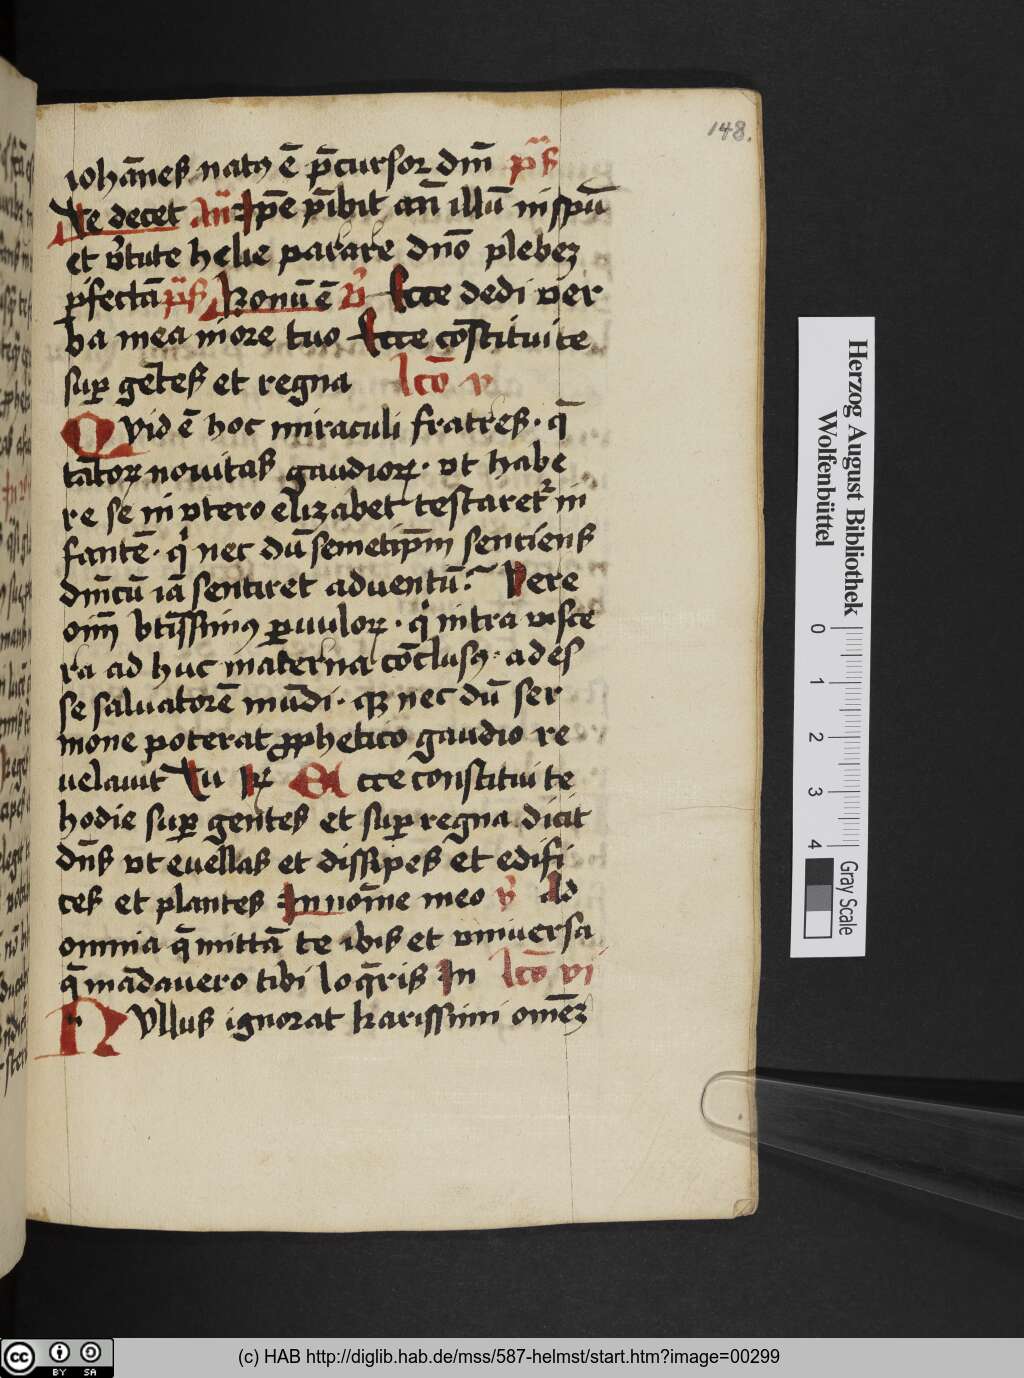 148.
iohānes natꝰ ē p̄cursor dm̄ pꝰs
Te decet an̄ Ipē p̄ibit an̄ illū in spū
et v̓tute helie parare dn̄o plebez
ꝑfectā ps̄ Bonū ē v̓ Ecce dedi ver
ba mea in ore tuo Ecce cōstitui te
suꝑ gētes et regna lcō v
Qvid ē hoc miraculi fratres · q̄
tātoꝝ nouitas gaudioꝝ · vt habe
re se in vtero elizabet testaret᷑ in
fantē · qⁱ nec dū semetip̄m sentiens
dm̄cū iā sentiret adventū · Vere
oīm btīssimꝰ ꝑuuloꝝ · qⁱ intra visce
ra ad huc materna cōclusꝰ · ades
se saluatorē mūdi · qꝫ nec dū ser
mone poterat ꝓphetico gaudio re
uelauit Tu R̷ Ecce constitui te
hodie suꝑ gentes et suꝑ regna dicit
dn̄s vt euellas et dissipes et edifi
ces et plantes In nōine meo v̓ Ad
omnia q̄ mittā te ibis et vniuersa
q̄ mādauero tibi loq̄ris In lcō vi
Nvllus ignorat karissimi om̄ez
Herzog August Bibliothek
Wolfenbüttel
0 1 2 3 4
Gray Scale
cc BY SA
(c) HAB http://diglib.hab.de/mss/587-helmst/start.htm?image=00299